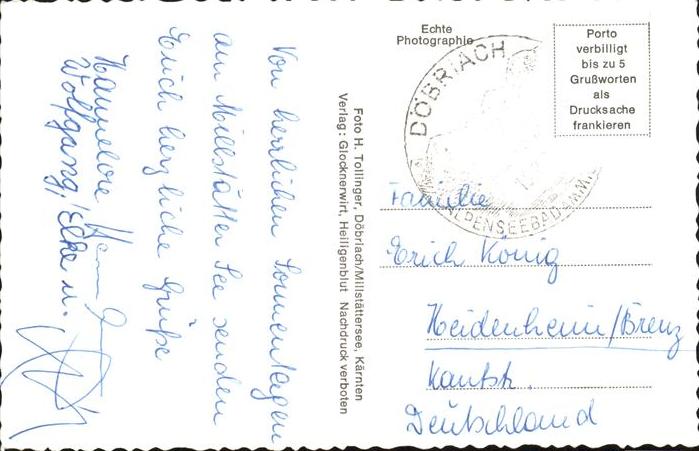 Von herrlichen Sonnentagen
am Millstätter See senden
Euch herzliche Grüße
Hannelore
Wolfgang, Elke u.
Foto H. Tollinger, Döbriach/Millstättersee, Kärnten
Verlag: Glocknerwirt, Heiligenblut Nachdruck verboten
Echte
Photographie
DÖBRIACH
ALPENSEEBAD
Porto
verbilligt
bis zu 5
Grußworten
als
Drucksache
frankieren
Familie
Erich König
Heidenheim/Brenz
Kantstr.
Deutschland